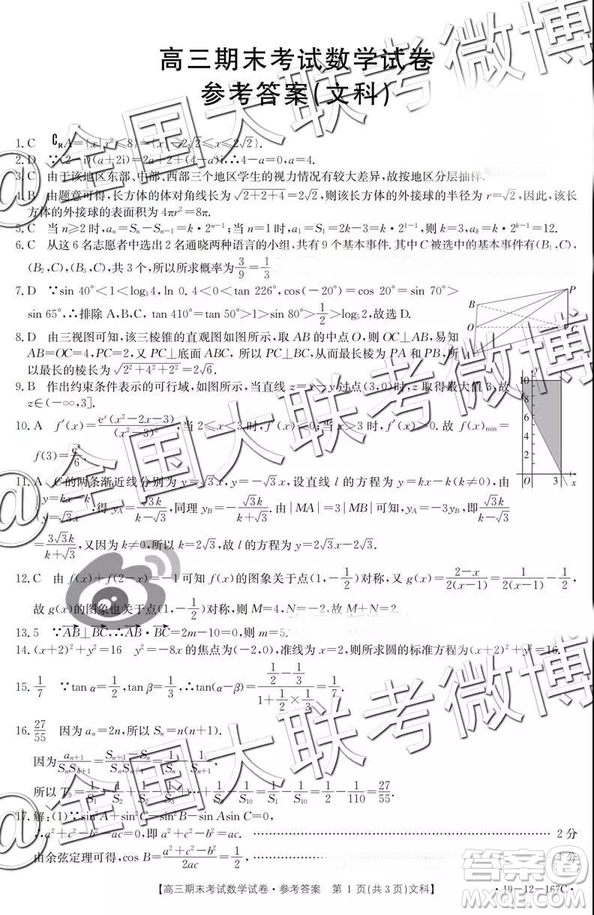 高三期末考试数学试卷
参考答案(文科)
1.C ∁RA={x|x²≤8}={x|-2√2≤x≤2√2}.
2.D ∵(2-i)(a+2i)=2a+2+(4-a)i,∴4-a=0,a=4.
3.C 由于该地区东部、中部、西部三个地区学生的视力情况有较大差异,故按地区分层抽样.
4.B 由题意可得,长方体的体对角线长为√(2+2+4)=2√2,则该长方体的外接球的半径为r=√2,因此,该长
方体的外接球的表面积为4πr²=8π.
5.C 当n≥2时,aₙ=Sₙ-Sₙ₋₁=k·2ⁿ⁻¹;当n=1时,a₁=S₁=2k-3=k·2¹⁻¹,则k=3,故a₃=k·2ᵏ⁻¹=12.
6.C 从这6名志愿者中选出2名通晓两种语言的小组,共有9个基本事件.其中C被选中的基本事件有(B₁,C),
(B₂,C),(B₃,C),共3个,所以所求概率为3/9=1/3.
7.D ∵sin 40°<1<log₃4,ln 0.4<0<tan 226°,cos(-20°)=cos 20°=sin 70°>
sin 65°,∴排除A,B,C,tan 410°=tan 50°>1>sin 80°>1/2>log₅2,故选D.
8.D 由三视图可知,该三棱锥的直观图如图所示,取AB的中点O,则OC⊥AB,易知
AB=OC=4,PC=2,又PC⊥底面ABC,所以PC⊥BC,从而最长的棱为PA和PB,所
以最长的棱长为√(2²+4²+2²)=2√6.
9.B 作出约束条件表示的可行域,如图所示,当直线z=x-y过点(3,0)时,z取得最大值3,故
z∈(-∞,3].
10.A f′(x)=eˣ(x²-2x-3)/(x²-3)²,当2≤x<3时,f′(x)<0;当x>3时,f′(x)>0.故f(x)min=
f(3)=e³/6.
11.A C的两条渐近线分别为y=√3x,y=-√3x,设直线l的方程为y=kx-k(k≠0),由
{y=kx-k, y=√3x,得yA=√3k/(k-√3),同理yB=-√3k/(k+√3).由|MA|=3|MB|可知,yA=-3yB,即√3k/(k-√3)
=3√3k/(k+√3),又因为k≠0,所以k=2√3,故l的方程为y=2√3x-2√3.
12.C 由f(x)+f(2-x)=-1可知f(x)的图象关于点(1,-1/2)对称,又g(x)=(2-x)/(2(x-1))=1/(2(x-1))-1/2,
故g(x)的图象也关于点(1,-1/2)对称,则M=4,N=-2,故M+N=2.
13.5 ∵AB⊥BC,∴AB·BC=2m-10=0,m=5.
14.(x+2)²+y²=16 y²=-8x的焦点为(-2,0),准线为x=2,所以所求圆的标准方程为(x+2)²+y²=16.
15.1/7 ∵tan α=1/2,tan β=1/3,∴tan(α-β)=(1/2-1/3)/(1+1/2×1/3)=1/7.
16.27/55 因为aₙ=2n,所以Sₙ=n(n+1).
因为aₙ₊₁/(SₙSₙ₊₁)=(Sₙ₊₁-Sₙ)/(SₙSₙ₊₁)=1/Sₙ-1/Sₙ₊₁,
所以T₉=1/S₁-1/S₂+1/S₂-1/S₃+…+1/S₉-1/S₁₀=1/S₁-1/S₁₀=1/2-1/110=27/55.
17.解:(1)∵sin²A+sin²C-sin²B=sin Asin C,
∴a²+c²-b²=ac,即a²+c²-b²=ac. 2分
由余弦定理可得,cos B=(a²+c²-b²)/2ac=1/2, 4分
【高三期末考试数学试卷·参考答案 第1页(共3页)文科】 ·19-12-167C·
@全国大联考微博